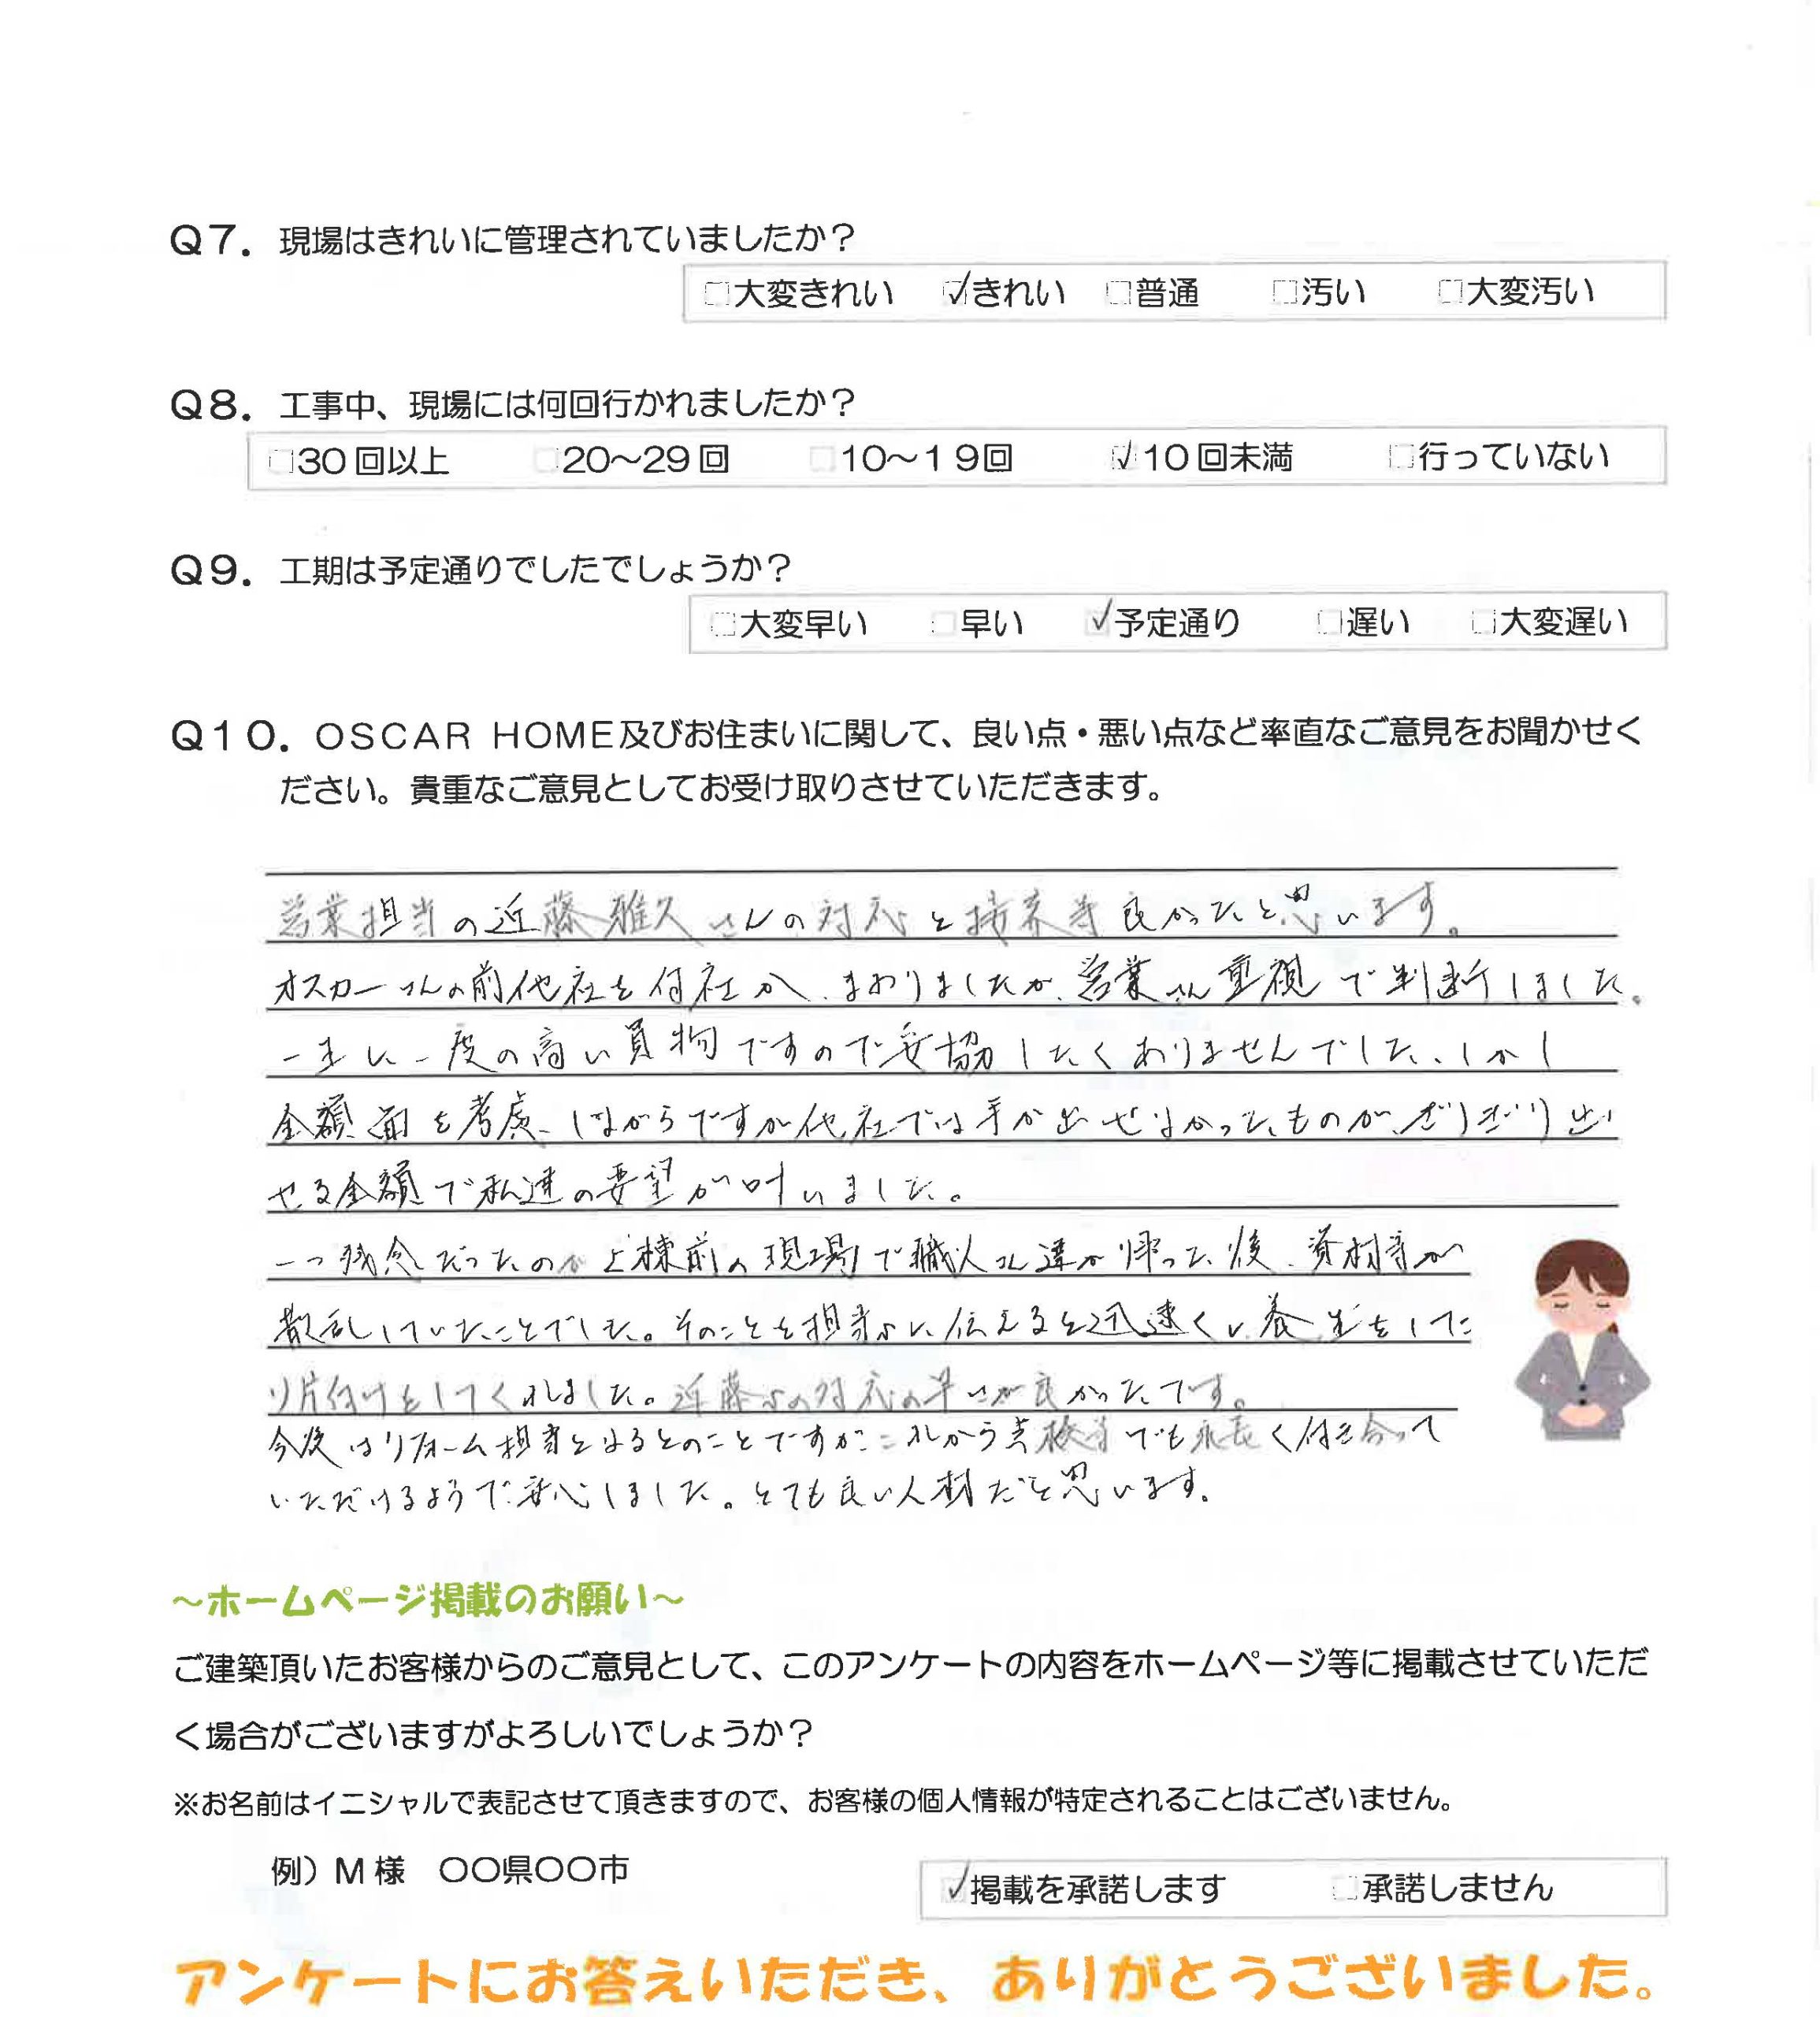 Q7. 現場はきれいに管理されていましたか？
□大変きれい ☑きれい □普通 □汚い □大変汚い
Q8. 工事中、現場には何回行かれましたか？
□30回以上 □20～29回 □10～19回 ☑10回未満 □行っていない
Q9. 工期は予定通りでしたでしょうか？
□大変早い □早い ☑予定通り □遅い □大変遅い
Q10. OSCAR HOME及びお住まいに関して、良い点・悪い点など率直なご意見をお聞かせく
ださい。貴重なご意見としてお受け取りさせていただきます。
営業担当の近藤雅久さんの対応と接客等良かったと思います。
オスカーさんの前他社を何社か、まわりましたが、営業さん重視で判断しました。
一生に一度の高い買物ですので妥協したくありませんでした、しかし
金額面を考慮、しながらですが他社では手が出せなかったものが、ぎりぎり出
せる金額で私達の要望が叶いました。
一つ残念だったのが上棟前の現場で職人さん達が帰った後、資材等が
散乱していたことでした。そのことを担当さんに伝えると迅速に養生をした
り片付けをしてくれました。近藤さんの対応の早さが良かったです。
今後はリフォーム担当となるとのことですが、これから点検等でも末長く付き合って
いただけるようで安心しました。とても良い人材だと思います。
～ホームページ掲載のお願い～
ご建築頂いたお客様からのご意見として、このアンケートの内容をホームページ等に掲載させていただ
く場合がございますがよろしいでしょうか？
※お名前はイニシャルで表記させて頂きますので、お客様の個人情報が特定されることはございません。
例）M様 〇〇県〇〇市
☑掲載を承諾します □承諾しません
アンケートにお答えいただき、ありがとうございました。